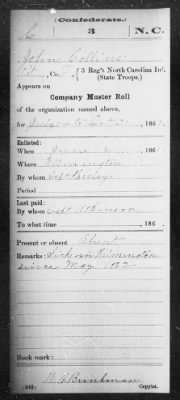 (Confederate.)
C 3 N.C.
John Collins
Co. 3 Reg't North Carolina Inf.
(State Troops.)
Appears on
Company Muster Roll
of the organization named above,
for to Oct 31, 186
Enlisted:
When June 186
Where Wilmington
By whom Capt Parsley
Period
Last paid:
By whom Capt
To what time , 186
Present or absent Absent
Remarks: Sick in Wilmington
since May 1862
Book mark:
(642) Copyist.